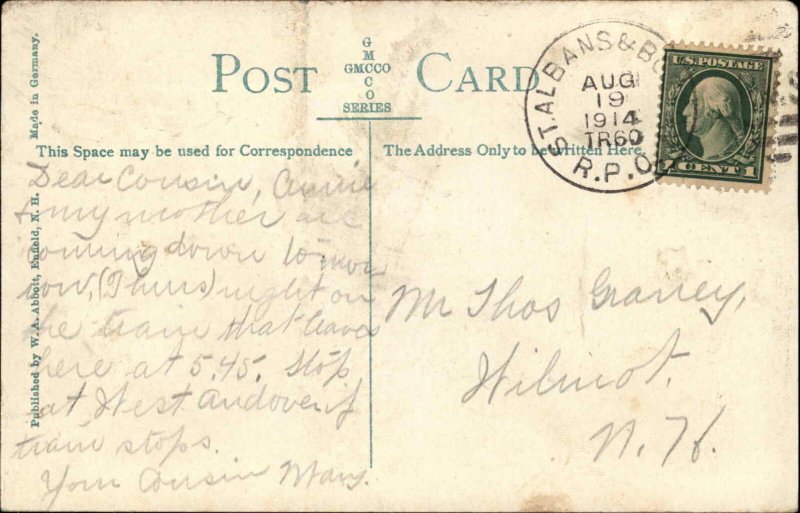 POST CARD
G
M
GMCCO
C
O
SERIES
This Space may be used for Correspondence
The Address Only to be Written Here
Published by W. A. Abbott, Enfield, N. H. Made in Germany.
ST. ALBANS & BO
AUG
19
1914
TR60
R.P.O.
U.S. POSTAGE
1 CENT 1
Dear Cousin, Annie
& my mother are
coming down to mor
row, (Thurs) night on
the train that leaves
here at 5.45. Stop
at West Andover if
train stops.
Your Cousin Mary.
Mr Thos Graney,
Wilmot.
N. H.